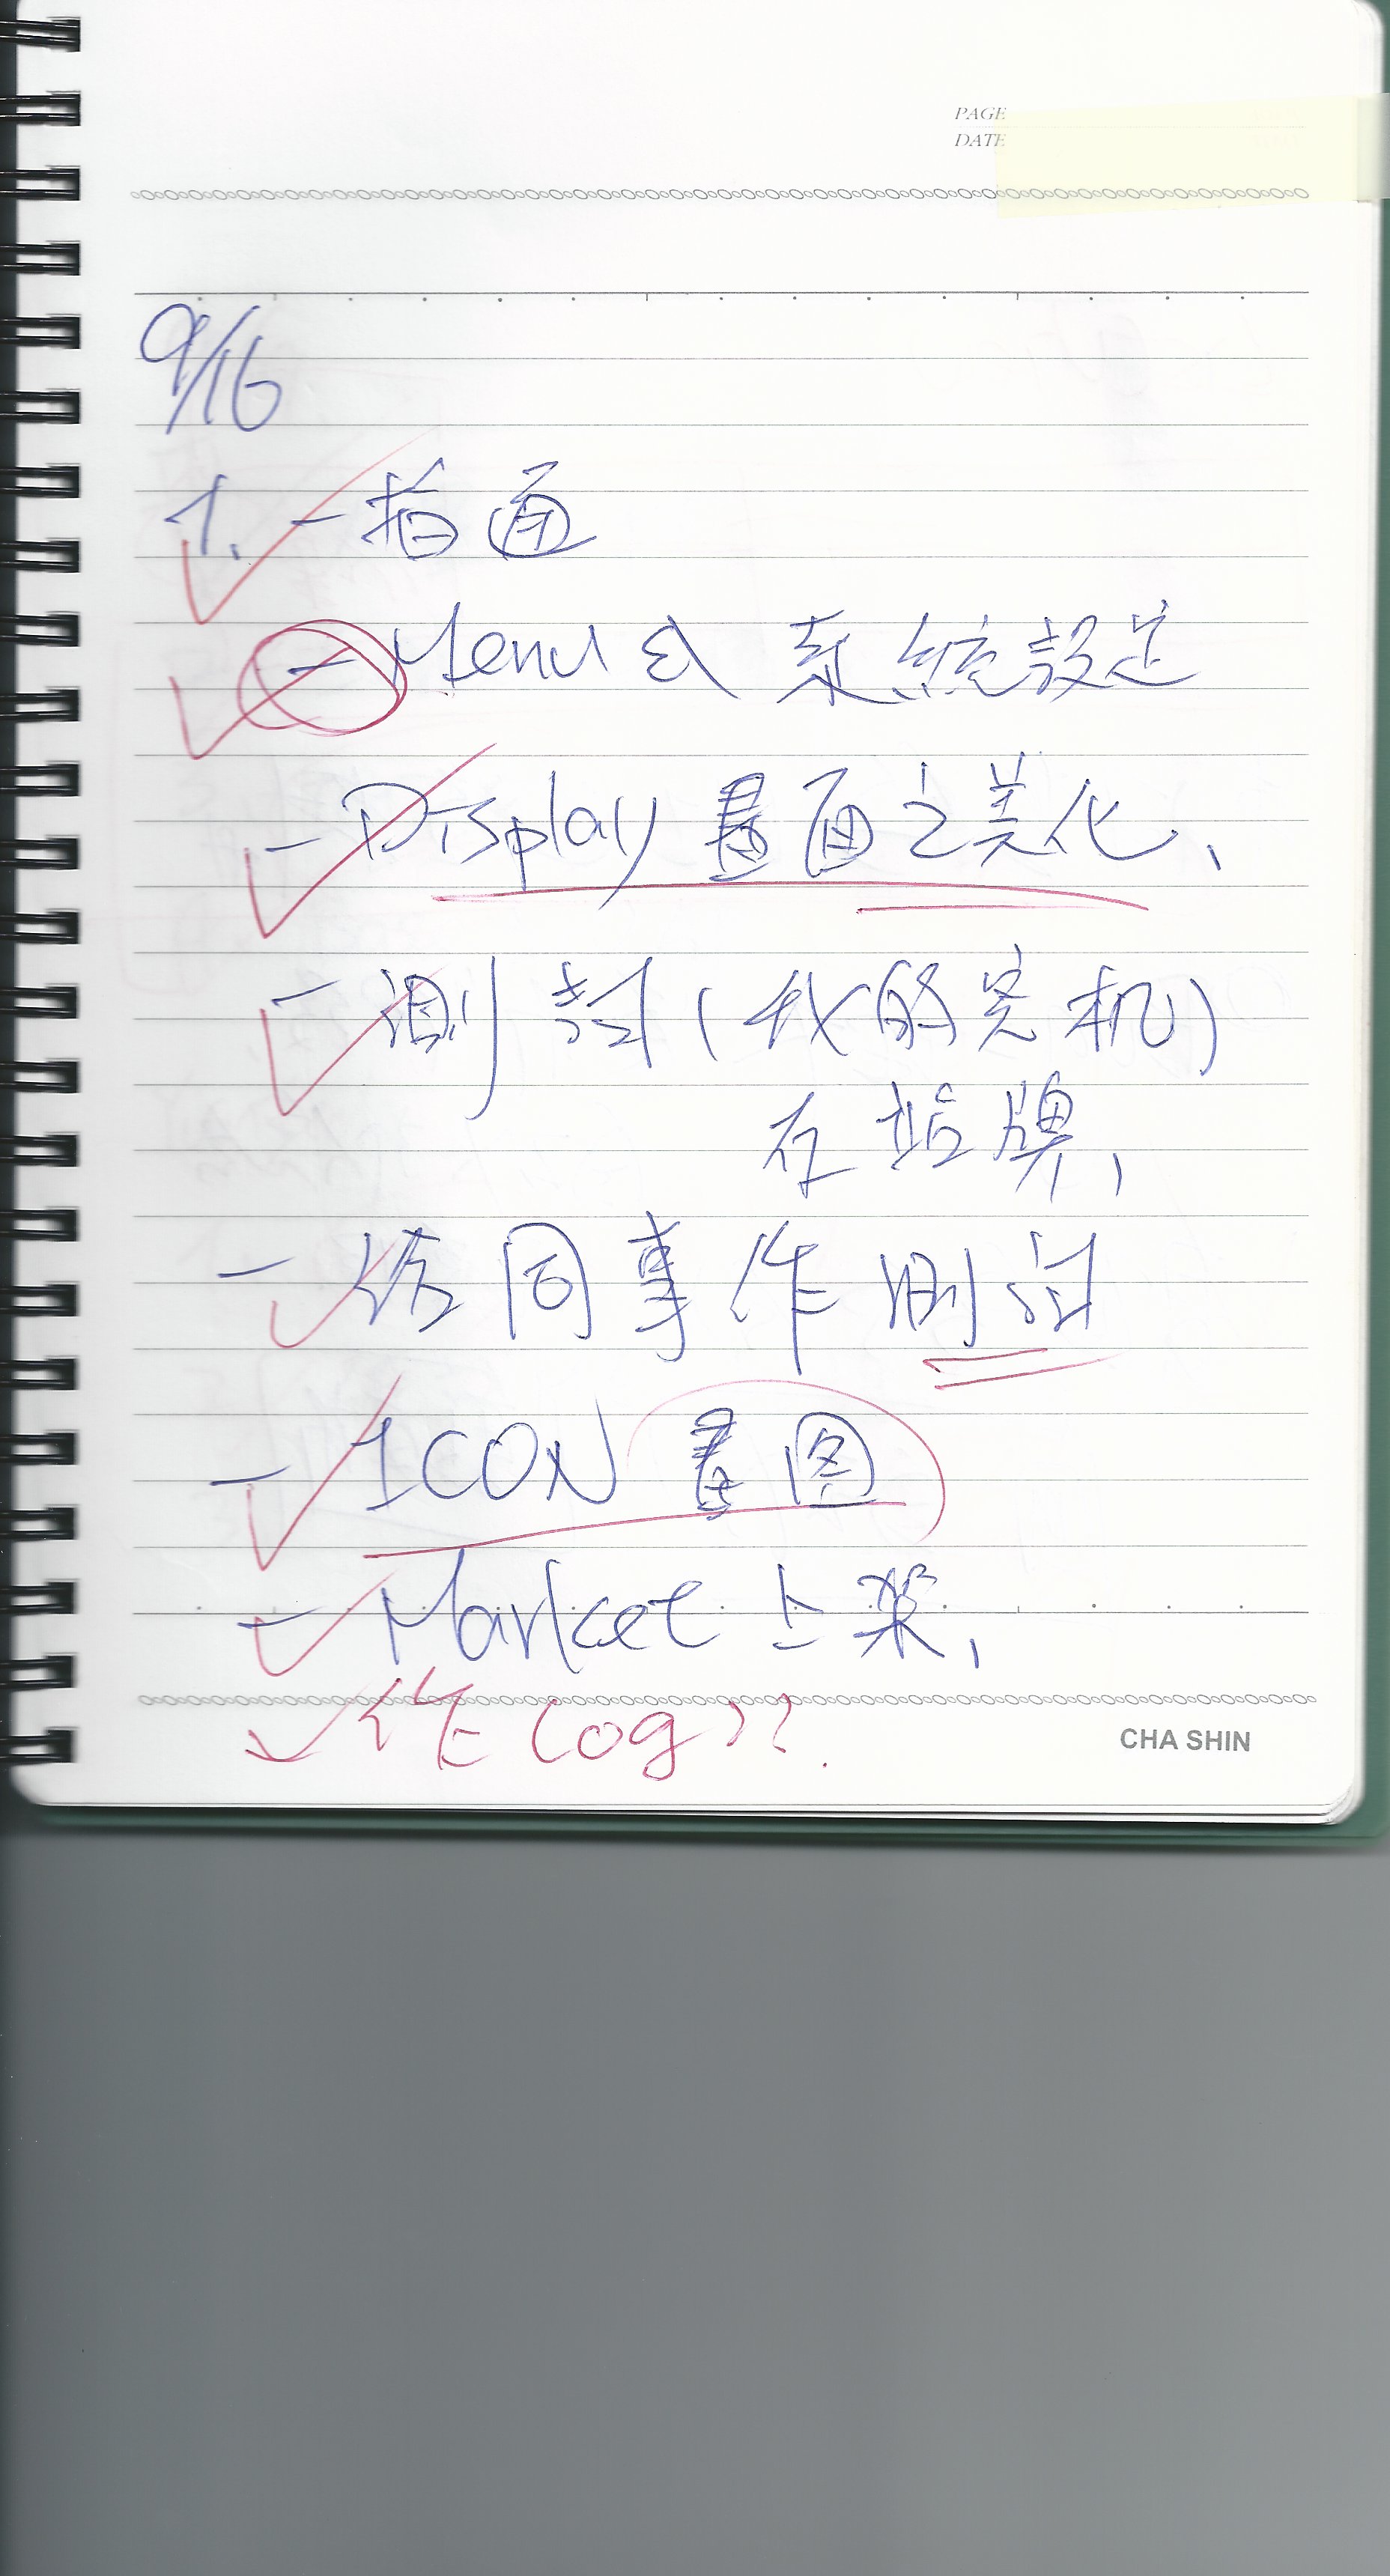 PAGE
DATE
9/16
1. -
- Menu 或 系統設定
- Display 畫面之美化、
- 測試 (我的完机)
在站牌、
- 給同事作測試
- ICON 畫图
- Market 上架、
作 Log??.
CHA SHIN